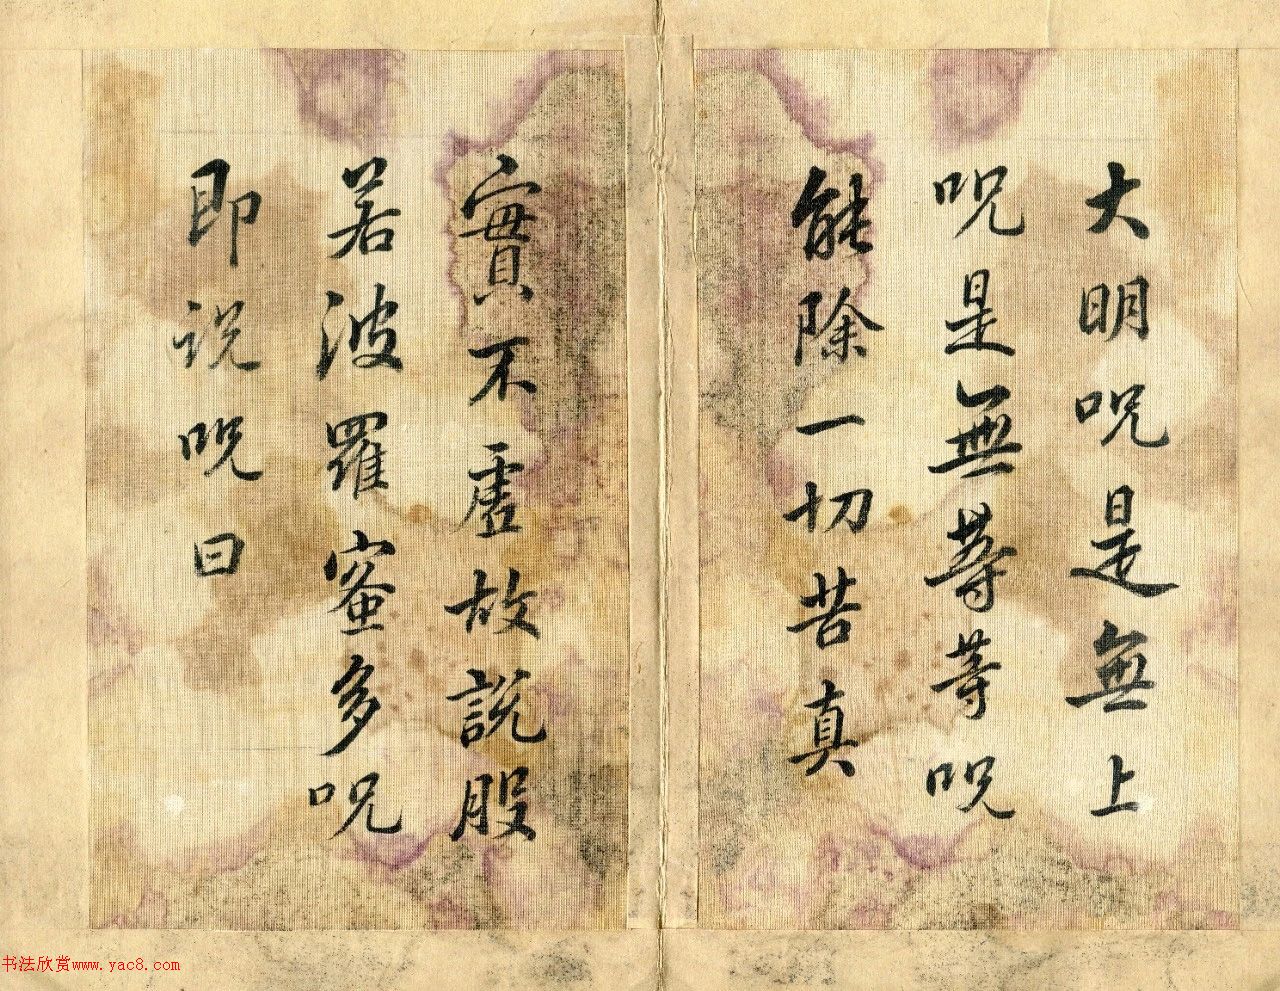 大明咒是無上
咒是無等等咒
能除一切苦真
實不虛故說般
若波羅蜜多咒
即说咒曰
书法欣赏www.yac8.com